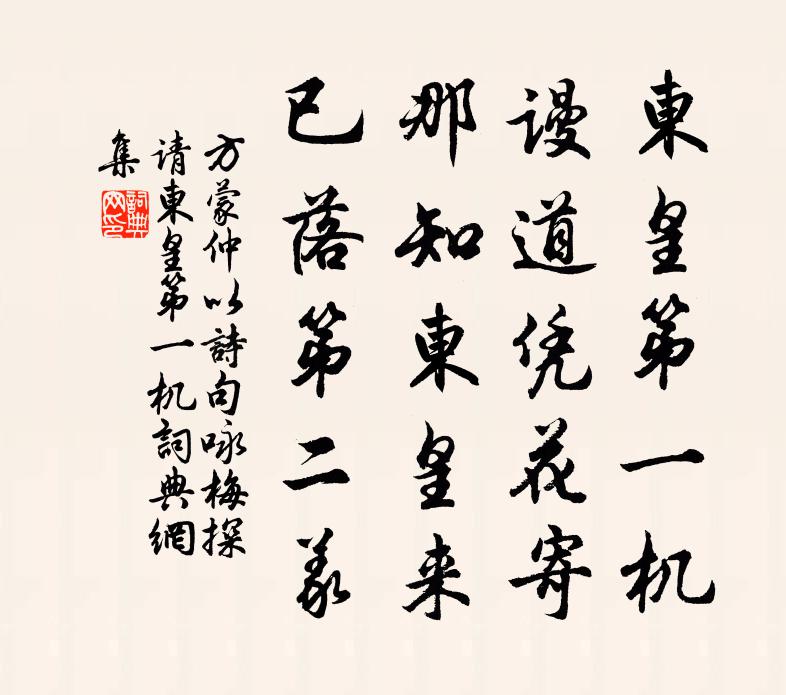 東皇第一机
谩道凭花寄
那知東皇来
已落第二义
方蒙仲以詩句咏梅探
请東皇第一机詞典網
集
詞典网印